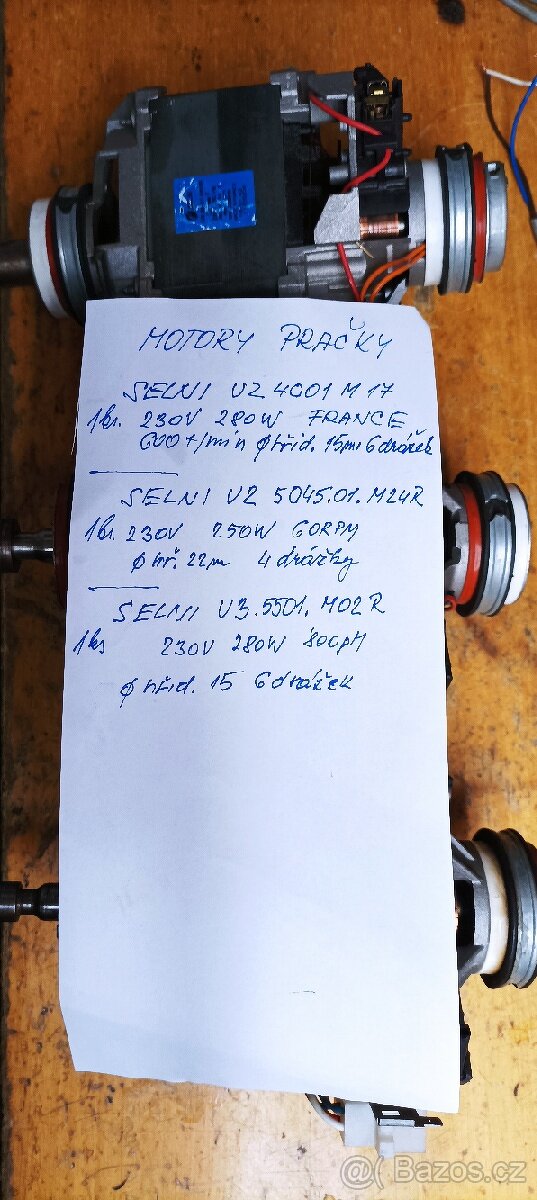 MOTORY PRAČKY
SELNI U2 4001 M 17
1ks. 230V 280W FRANCE
600 t/min ϕ hříd. 15mm 6 drážek
SELNI U2 5045.01.M24R
1ks 230V 250W 60RPM
ϕ hř. 22m 4 drážky
SELNI U3.5501.M02R
1ks 230V 280W 80
ϕ hříd. 15 6 drážek
@ Bazos.cz